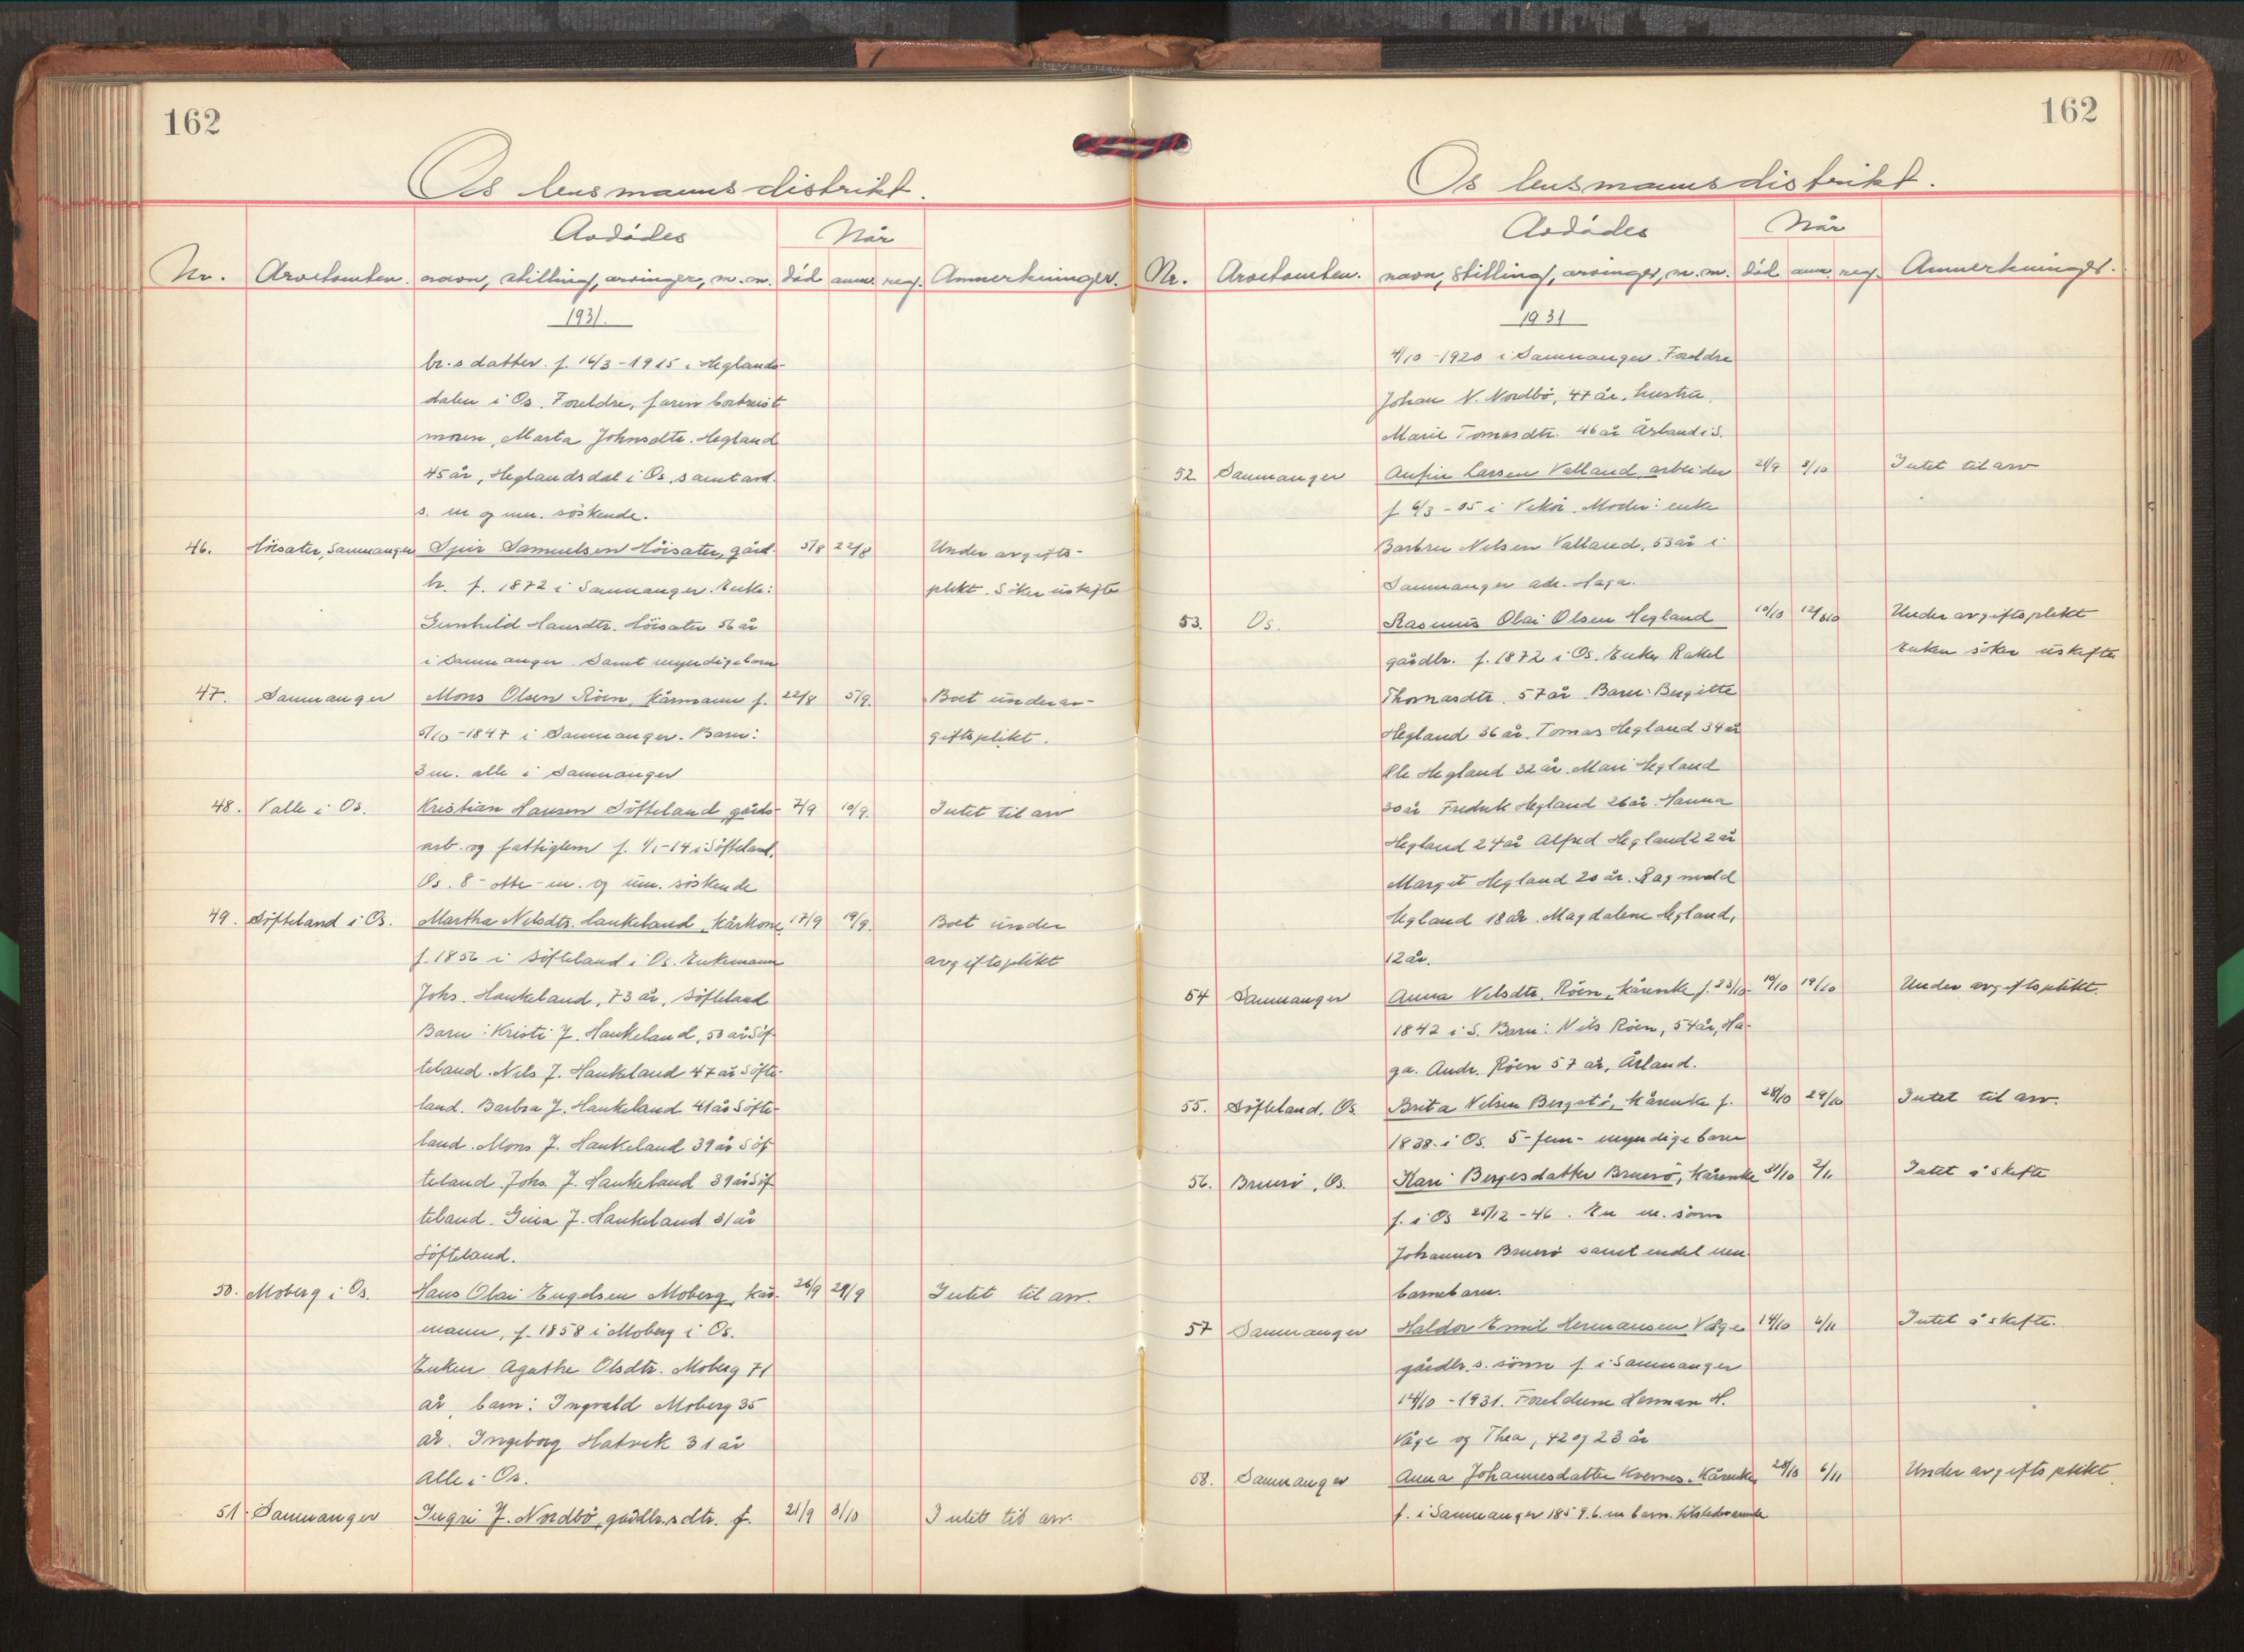 162
Os lensmannsdistrikt.
Avdödes
Når
Nr. Arvetomten. navn, stilling, arvinger, m.m. död anm. reg. Anmerkninger.
1931.
br.s datter. f. 16/3-1915 i Heglands-
dalen i Os. Foreldre, faren bortreist
moren, Marta Johnsdtr. Hegland
45 år, Heglandsdal i Os, samt
s. m og um. söskende.
46. Höisæter, Samnanger Sjur Samuelsen Höisæter, gård- 5/8 22/8 Under avgifts-
br. f. 1872 i Samnanger. Enke: plikt. Söker uskifte
Gunhild Hansdtr. Höisæter 56 år
i Samnanger samt myndige barn
47. Samnanger Mons Olsen Röen, kårmann f. 22/8 5/9. Boet under av-
5/10-1847 i Samnanger. Barn: giftsplikt.
3 m. alle i Samnanger
48. Valle i Os. Kristian Hansen Söfteland gårds- 7/9 10/9. Intet til arv
arb. og fattiglem f. 1/1-14 i Söfteland,
Os. 8-otte-m. og um. söskende
49. Söfteland i Os. Martha Nilsdtr. Haukeland, kårkone 17/9 19/9. Boet under
f. 1856 i Söfteland i Os. Enkemann avgiftsplikt
Johs. Haukeland, 73 år, Söfteland
Barn: Kristi J. Haukeland, 50 år Söf-
teland. Nils J. Haukeland 47 år Söfte-
land. Barbra J. Haukeland 41 år Söfte-
land. Mons J. Haukeland 39 år Söf
teland. Johs. J. Haukeland 39 år Söf-
teland. Gina J. Haukeland 31 år
Söfteland.
50. Moberg i Os. Hans Olai Engelsen Moberg, kår- 26/9 29/9 Intet til arv.
mann, f. 1858 i Moberg i Os.
Enken Agathe Olsdtr. Moberg 71
år, barn: Ingvald Moberg 35
år. Ingeborg Hatvik 31 år
Alle i Os.
51. Samnanger Ingri J. Nordbö, gårdbr.s dtr. f. 21/9 3/10 Intet til arv.
162
Os lensmannsdistrikt.
Avdödes
Når
Nr. Arvetomten. navn, stilling, arvinger, m.m. död anm. reg. Anmerkninger.
1931
4/10-1920 i Samnanger. Foreldre
Johan N. Nordbö, 47 år, hustru
Marie Tomasdtr. 46 år Årland i S.
52 Samnanger Anfin Larsen Valland arbeider 21/9 3/10 Intet til arv
f 6/3-05 i Vikör. Moder: enke
Barbru Nilsen Valland, 53 år i
Samnanger adr. Haga.
53. Os. Rasmus Olai Olsen Hegland 10/10 12/10 Under avgiftsplikt
gårdbr. f. 1872 i Os. Enke, Rakel Enken söker uskifte
Thomasdtr. 57 år. Barn: Bergitte
Hegland 36 år. Tomas Hegland 34 år
Ole Hegland 32 år. Mari Hegland
30 år Fredrik Hegland 26 år. Hanna
Hegland 24 år Alfred Hegland 22 år
Margit Hegland 20 år. Ragnvald
Hegland 18 år. Magdalene Hegland,
12 år.
54 Samnanger Anna Nilsdtr. Röen, kårenke f. 23/10- 10/10 19/10 Under avgiftsplikt.
1842 i S. Barn: Nils Röen, 54 år, Ha-
ga. Andr. Röen 57 år, Årland.
55. Söfteland, Os Brita Nilsen Bergstö, kårenke f. 28/10 29/10 Intet til arv.
1838. i Os. 5-fem- myndige barn
56. Bruerö, Os. Kari Bergesdatter Bruerö, kårenke 31/10 2/11 Intet å skifte
f. i Os 25/12-46. En m. sönn
Johannes Bruerö samt endel um
barnebarn.
57 Samnanger Haldor Emil Hermansen Våge 14/10 6/11 Intet å skifte.
gårdbr.s. sönn f. i Samnanger
14/10-1931. Foreldrene Herman H.
Våge og Thea, 42 og 23 år
58. Samnanger Anna Johannesdatter Kvernes. Kårenke 28/10 6/11 Under avgiftsplikt
f. i Samnanger 1859. 6. m barn. tilstedeværende